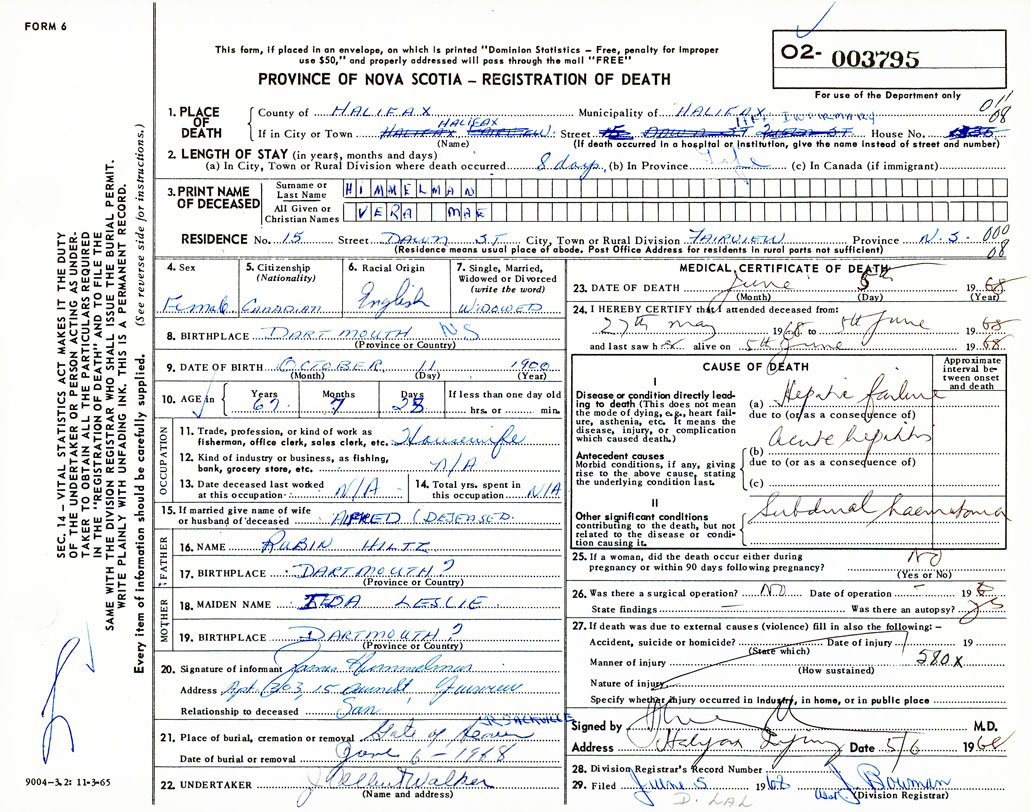 FORM 6
This form, if placed in an envelope, on which is printed "Dominion Statistics – Free, penalty for improper
use $50," and properly addressed will pass through the mail "FREE"
PROVINCE OF NOVA SCOTIA – REGISTRATION OF DEATH
02- 003795
For use of the Department only
011
08
1. PLACE OF DEATH
County of HALIFAX Municipality of HALIFAX
HALIFAX HFX INFIRMARY
If in City or Town HALIFAX FAIRVIEW Street 15 DAWN ST House No.
(Name) (If death occurred in a hospital or institution, give the name instead of street and number)
2. LENGTH OF STAY (in years, months and days)
(a) In City, Town or Rural Division where death occurred 8 days (b) In Province Life (c) In Canada (if immigrant)
3. PRINT NAME OF DECEASED
Surname or Last Name HIMMELMAN
All Given or Christian Names VERA MAE
RESIDENCE No. 15 Street DAWN ST City, Town or Rural Division FAIRVIEW Province N.S. 000
08
(Residence means usual place of abode. Post Office Address for residents in rural parts not sufficient)
4. Sex 5. Citizenship (Nationality) 6. Racial Origin 7. Single, Married, Widowed or Divorced (write the word)
Female CANADIAN English WIDOWED
8. BIRTHPLACE DARTMOUTH NS
(Province or Country)
9. DATE OF BIRTH OCTOBER 11 1900
(Month) (Day) (Year)
10. AGE in Years Months Days If less than one day old
67 7 25 hrs. or min.
OCCUPATION
11. Trade, profession, or kind of work as
fisherman, office clerk, sales clerk, etc. Housewife
12. Kind of industry or business, as fishing,
bank, grocery store, etc. N/A
13. Date deceased last worked at this occupation N/A 14. Total yrs. spent in this occupation N/A
15. If married give name of wife
or husband of deceased ALFRED (DECEASED.
FATHER
16. NAME RUBIN HILTZ
17. BIRTHPLACE DARTMOUTH ?
(Province or Country)
MOTHER
18. MAIDEN NAME IDA LESLIE
19. BIRTHPLACE DARTMOUTH ?
(Province or Country)
20. Signature of informant James Himmelman
Address Apt 303, 15 Fairview
Relationship to deceased Son
21. Place of burial, cremation or removal Gate of Heaven LR. SACKVILLE
Date of burial or removal June 6 - 1968
22. UNDERTAKER J Albert Walker
(Name and address)
MEDICAL CERTIFICATE OF DEATH
23. DATE OF DEATH June 5th 1968
(Month) (Day) (Year)
24. I HEREBY CERTIFY that I attended deceased from:
27th May 1968 to 5th June 1968
and last saw her alive on 5th June 1968
CAUSE OF DEATH
Approximate interval between onset and death
I
Disease or condition directly leading to death (This does not mean the mode of dying, e.g., heart failure, asthenia, etc. It means the disease, injury, or complication which caused death.)
(a) Hepatic failure
due to (or as a consequence of)
acute hepatitis
Antecedent causes
Morbid conditions, if any, giving rise to the above cause, stating the underlying condition last.
(b)
due to (or as a consequence of)
(c)
II
Other significant conditions
contributing to the death, but not related to the disease or condition causing it.
Subdural haematoma
25. If a woman, did the death occur either during
pregnancy or within 90 days following pregnancy? NO
(Yes or No)
26. Was there a surgical operation? NO Date of operation – 196
State findings — Was there an autopsy? yes
27. If death was due to external causes (violence) fill in also the following: –
Accident, suicide or homicide? Date of injury 19
(State which)
Manner of injury 580X
(How sustained)
Nature of injury
Specify whether injury occurred in industry, in home, or in public place
Signed by M.D.
Address Halifax Date 5/6 1968
28. Division Registrar's Record Number
29. Filed June 5 1968 J Bowman
Asst (Division Registrar)
D. LAL
SEC. 14 – VITAL STATISTICS ACT MAKES IT THE DUTY
OF THE UNDERTAKER OR PERSON ACTING AS UNDER-
TAKER TO OBTAIN ALL THE PARTICULARS REQUIRED
IN THE "REGISTRATION OF DEATH" AND TO FILE THE
SAME WITH THE DIVISION REGISTRAR WHO SHALL ISSUE THE BURIAL PERMIT.
WRITE PLAINLY WITH UNFADING INK. THIS IS A PERMANENT RECORD.
Every item of information should be carefully supplied. (See reverse side for instructions.)
9004-3.2: 11-3-65